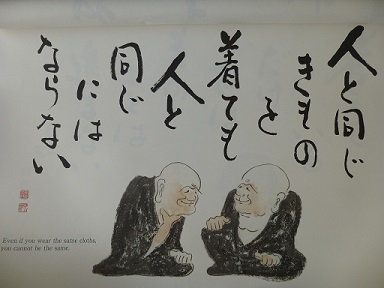 人と同じ
きもの
を
着ても
人と
同じ
には
ならない
Even if you wear the same cloths,
you cannot be the same.